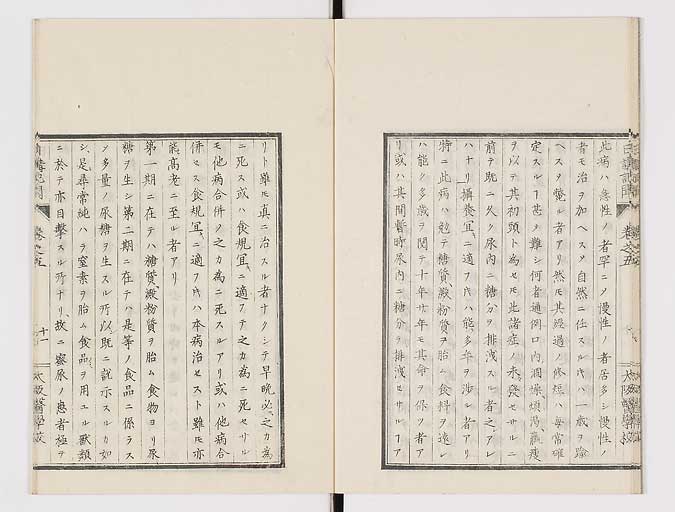 此病ハ急性ノ者罕ニノ慢性ノ者居多シ慢性ノ
者モ治ヲ加ヘスメ自然ニ任スル𪜈ハ一歳ヲ踰
ヘスメ斃ル者アリ然𪜈其經過ノ修短ハ毎常確
定スルヿ甚タ難シ何者通例口内涸燥煩渇羸痩
ヲ以テ其初頭ト為セ𪜈此諸症ノ未タ發セサルニ
前テ既ニ久ク尿内ニ糖分ヲ排洩スル者之アレ
ハナリ攝養宜ニ適フ𪜈ハ能ク多年ヲ渉ル者アリ
特ニ此病ハ勉テ糖質澱粉質ヲ胎ム食料ヲ遠レ
ハ能ク多歳ヲ閲テ十年廿年モ其命ヲ保ツ者ア
リ或ハ其間暫時尿内ニ糖分ヲ排洩セサルヿア
リト雖𪜈真ニ治スル者ナクシテ早晩必ス之カ為
ニ死ス或ハ食規宜ニ適フテ之カ為ニ死セサル
モ他病合併ノ之カ為ニ死スルアリ或ハ他病合
併セス食規宜ニ適フ𪜈ハ本病治セスト雖𪜈亦
能高老ニ至ル者アリ
第一期ニ在テハ糖質澱粉質ヲ胎ム食物ヨリ尿
糖ヲ生シ第二期ニ在テハ是等ノ食品ニ係ラス
ノ多量ノ尿糖ヲ生スル所以既ニ説示スルカ如
シ是尋常純ハラ窒素ヲ胎ム食品ヲ用ユル獸類
ニ於テ亦目撃スル所ナリ故ニ蜜尿ノ患者極テ
卷之五
十一
大阪醫學校